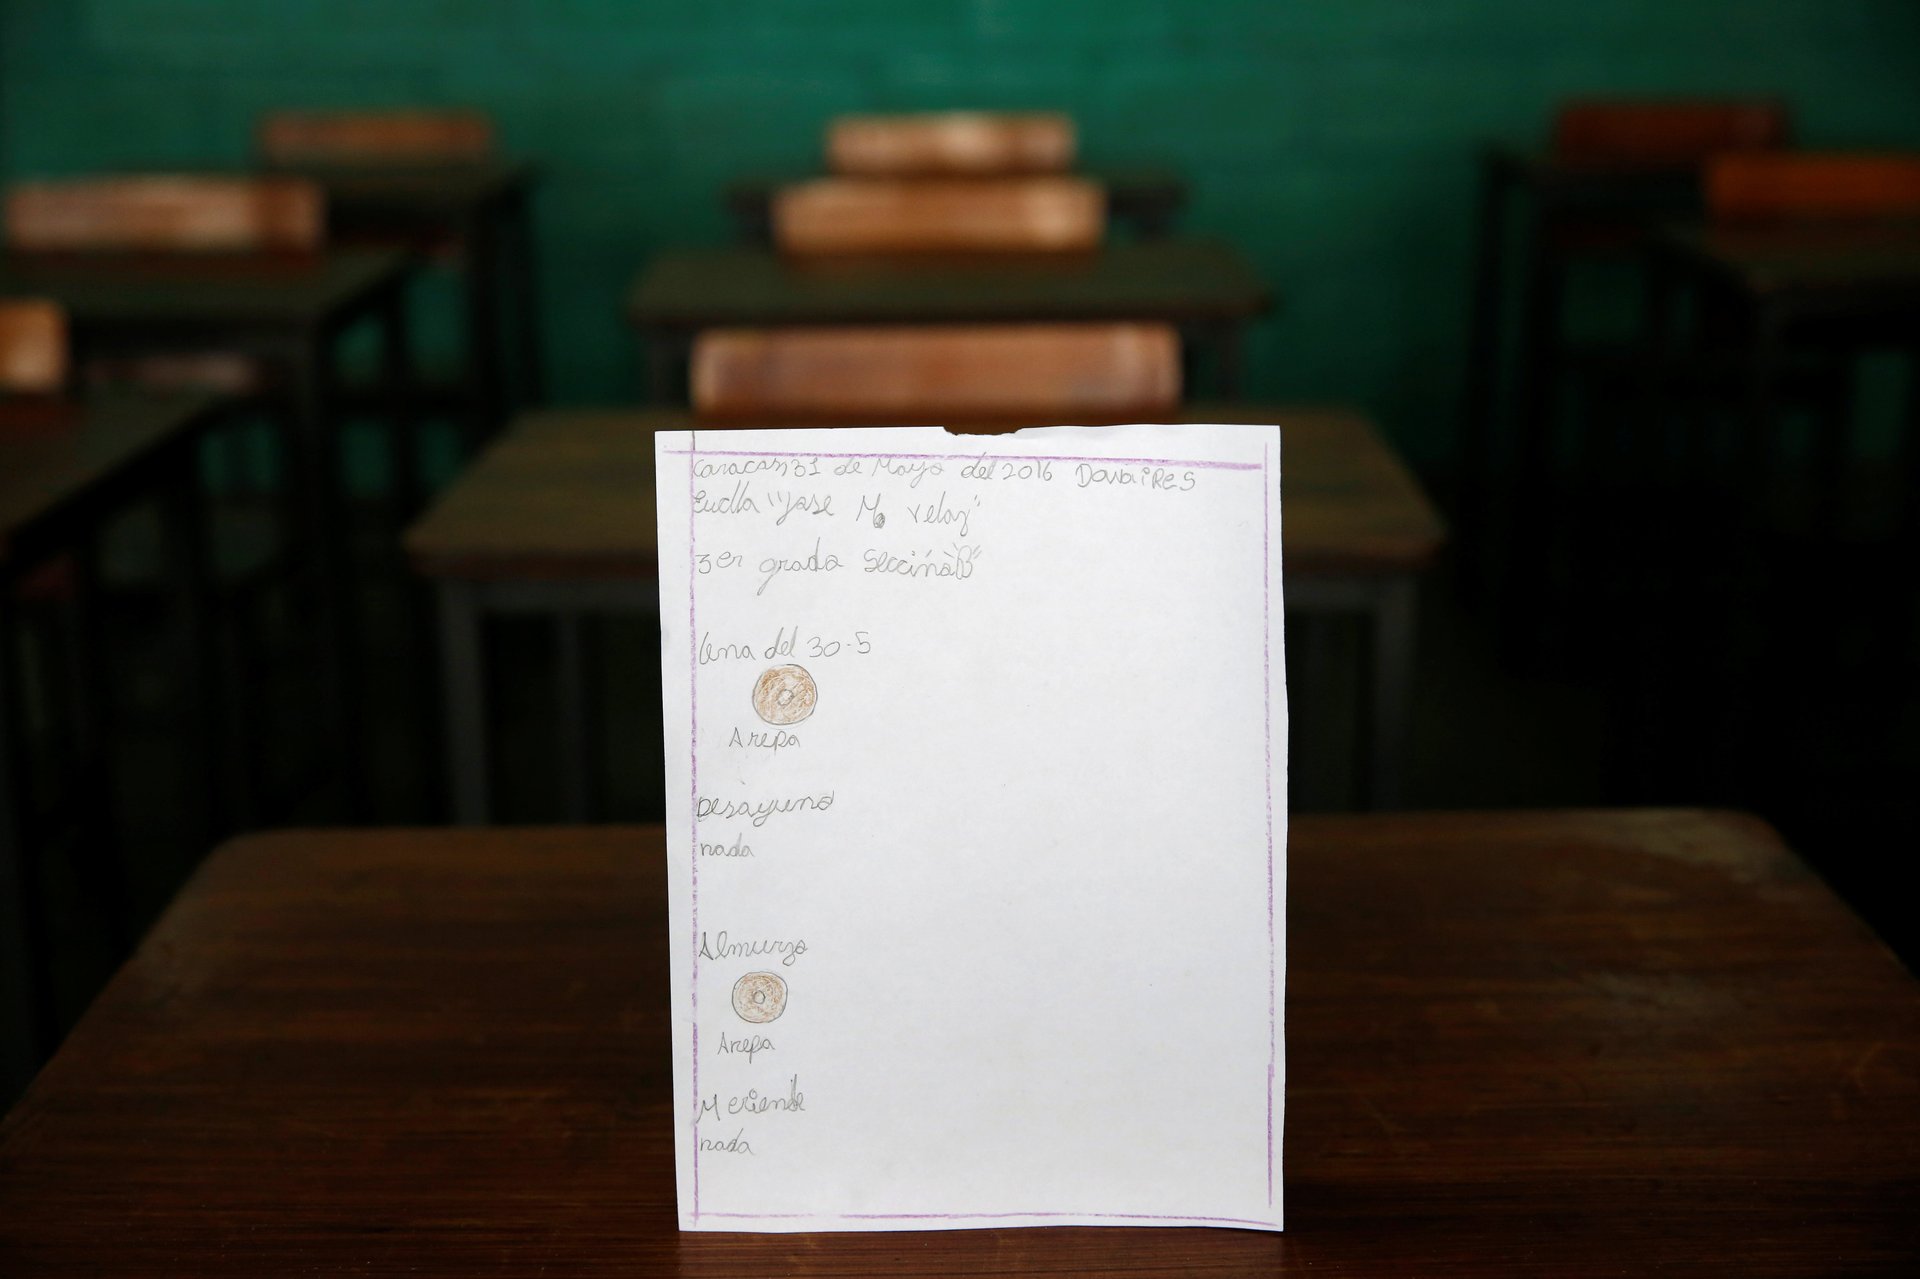 Caracas 31 de Mayo del 2016 Davaires
"Jose M. velaz"
3er grado "B"
Cena del 30-5
Arepa
Desayuno
nada
Almurzo
Arepa
Meriende
nada